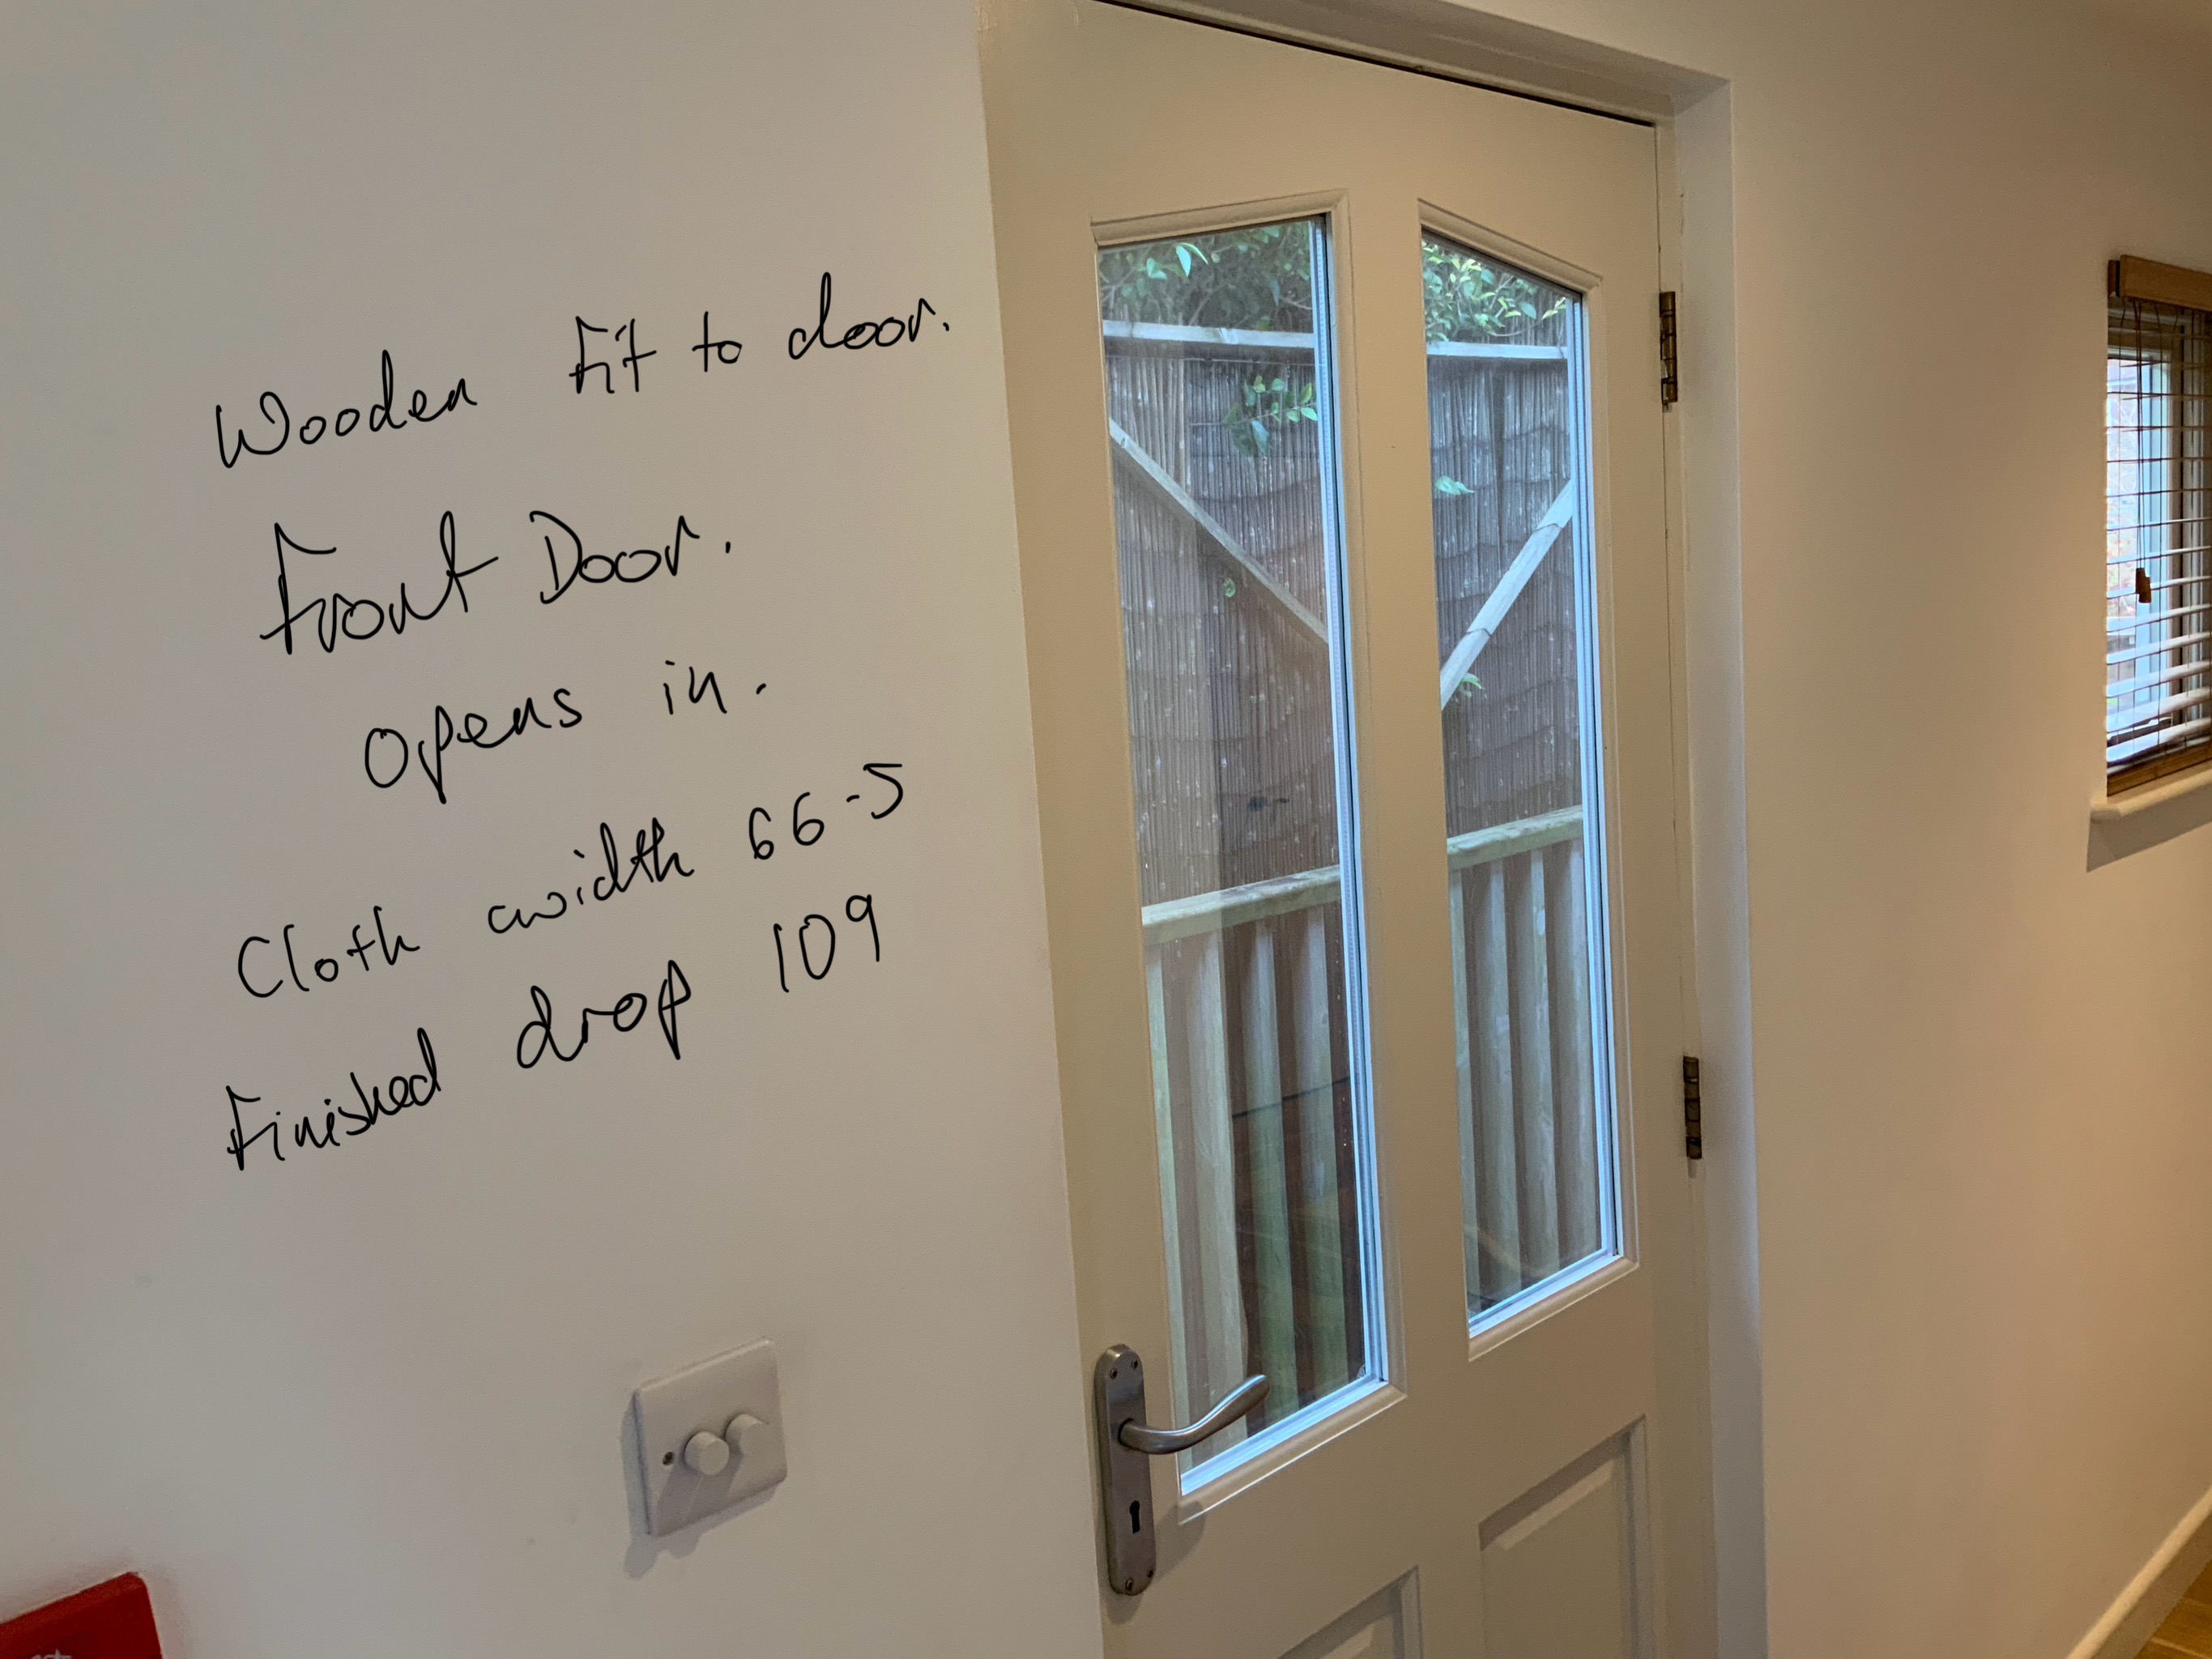 Wooden fit to door.
Front Door.
opens in.
Cloth width 66-5
Finished drop 109